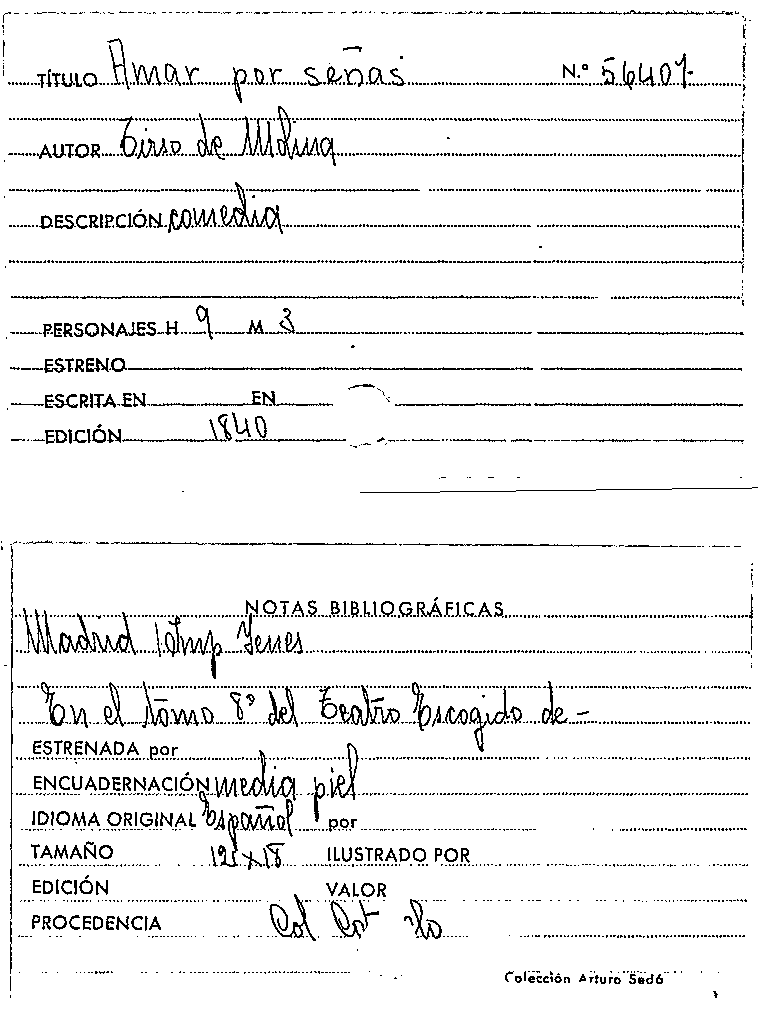 TÍTULO Amar por señas N.º 56407-
AUTOR Tirso de Molina
DESCRIPCIÓN comedia
PERSONAJES H 9 M 3
ESTRENO
ESCRITA EN EN
EDICIÓN 1840
NOTAS BIBLIOGRÁFICAS
Madrid Imp Yenes
En el tomo 8º del Teatro Escogido de -
ESTRENADA por
ENCUADERNACIÓN media piel
IDIOMA ORIGINAL Español por
TAMAÑO 12 x 18 ILUSTRADO POR
EDICIÓN VALOR
PROCEDENCIA Col Cot
Colección Arturo Sedó